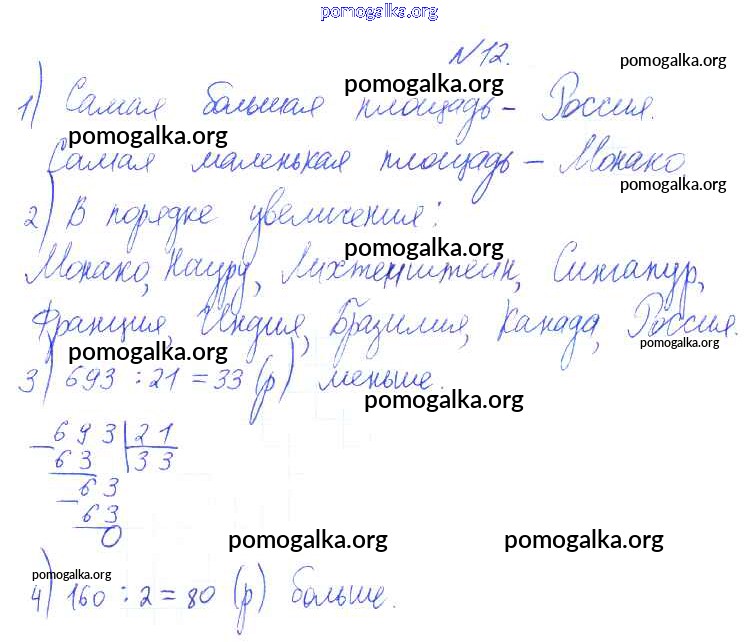 pomogalka.org
N12.
pomogalka.org
pomogalka.org
1) Самая большая площадь – Россия.
pomogalka.org
Самая маленькая площадь – Монако
pomogalka.org
2) В порядке увеличения:
pomogalka.org
Монако, Науру, Лихтенштейн, Сингапур,
Франция, Индия, Бразилия, Канада, Россия.
pomogalka.org
pomogalka.org
3) 693 : 21 = 33 (р) меньше.
pomogalka.org
693 | 21
63 | 33
63
63
0
pomogalka.org pomogalka.org
pomogalka.org
4) 160 : 2 = 80 (р) больше.